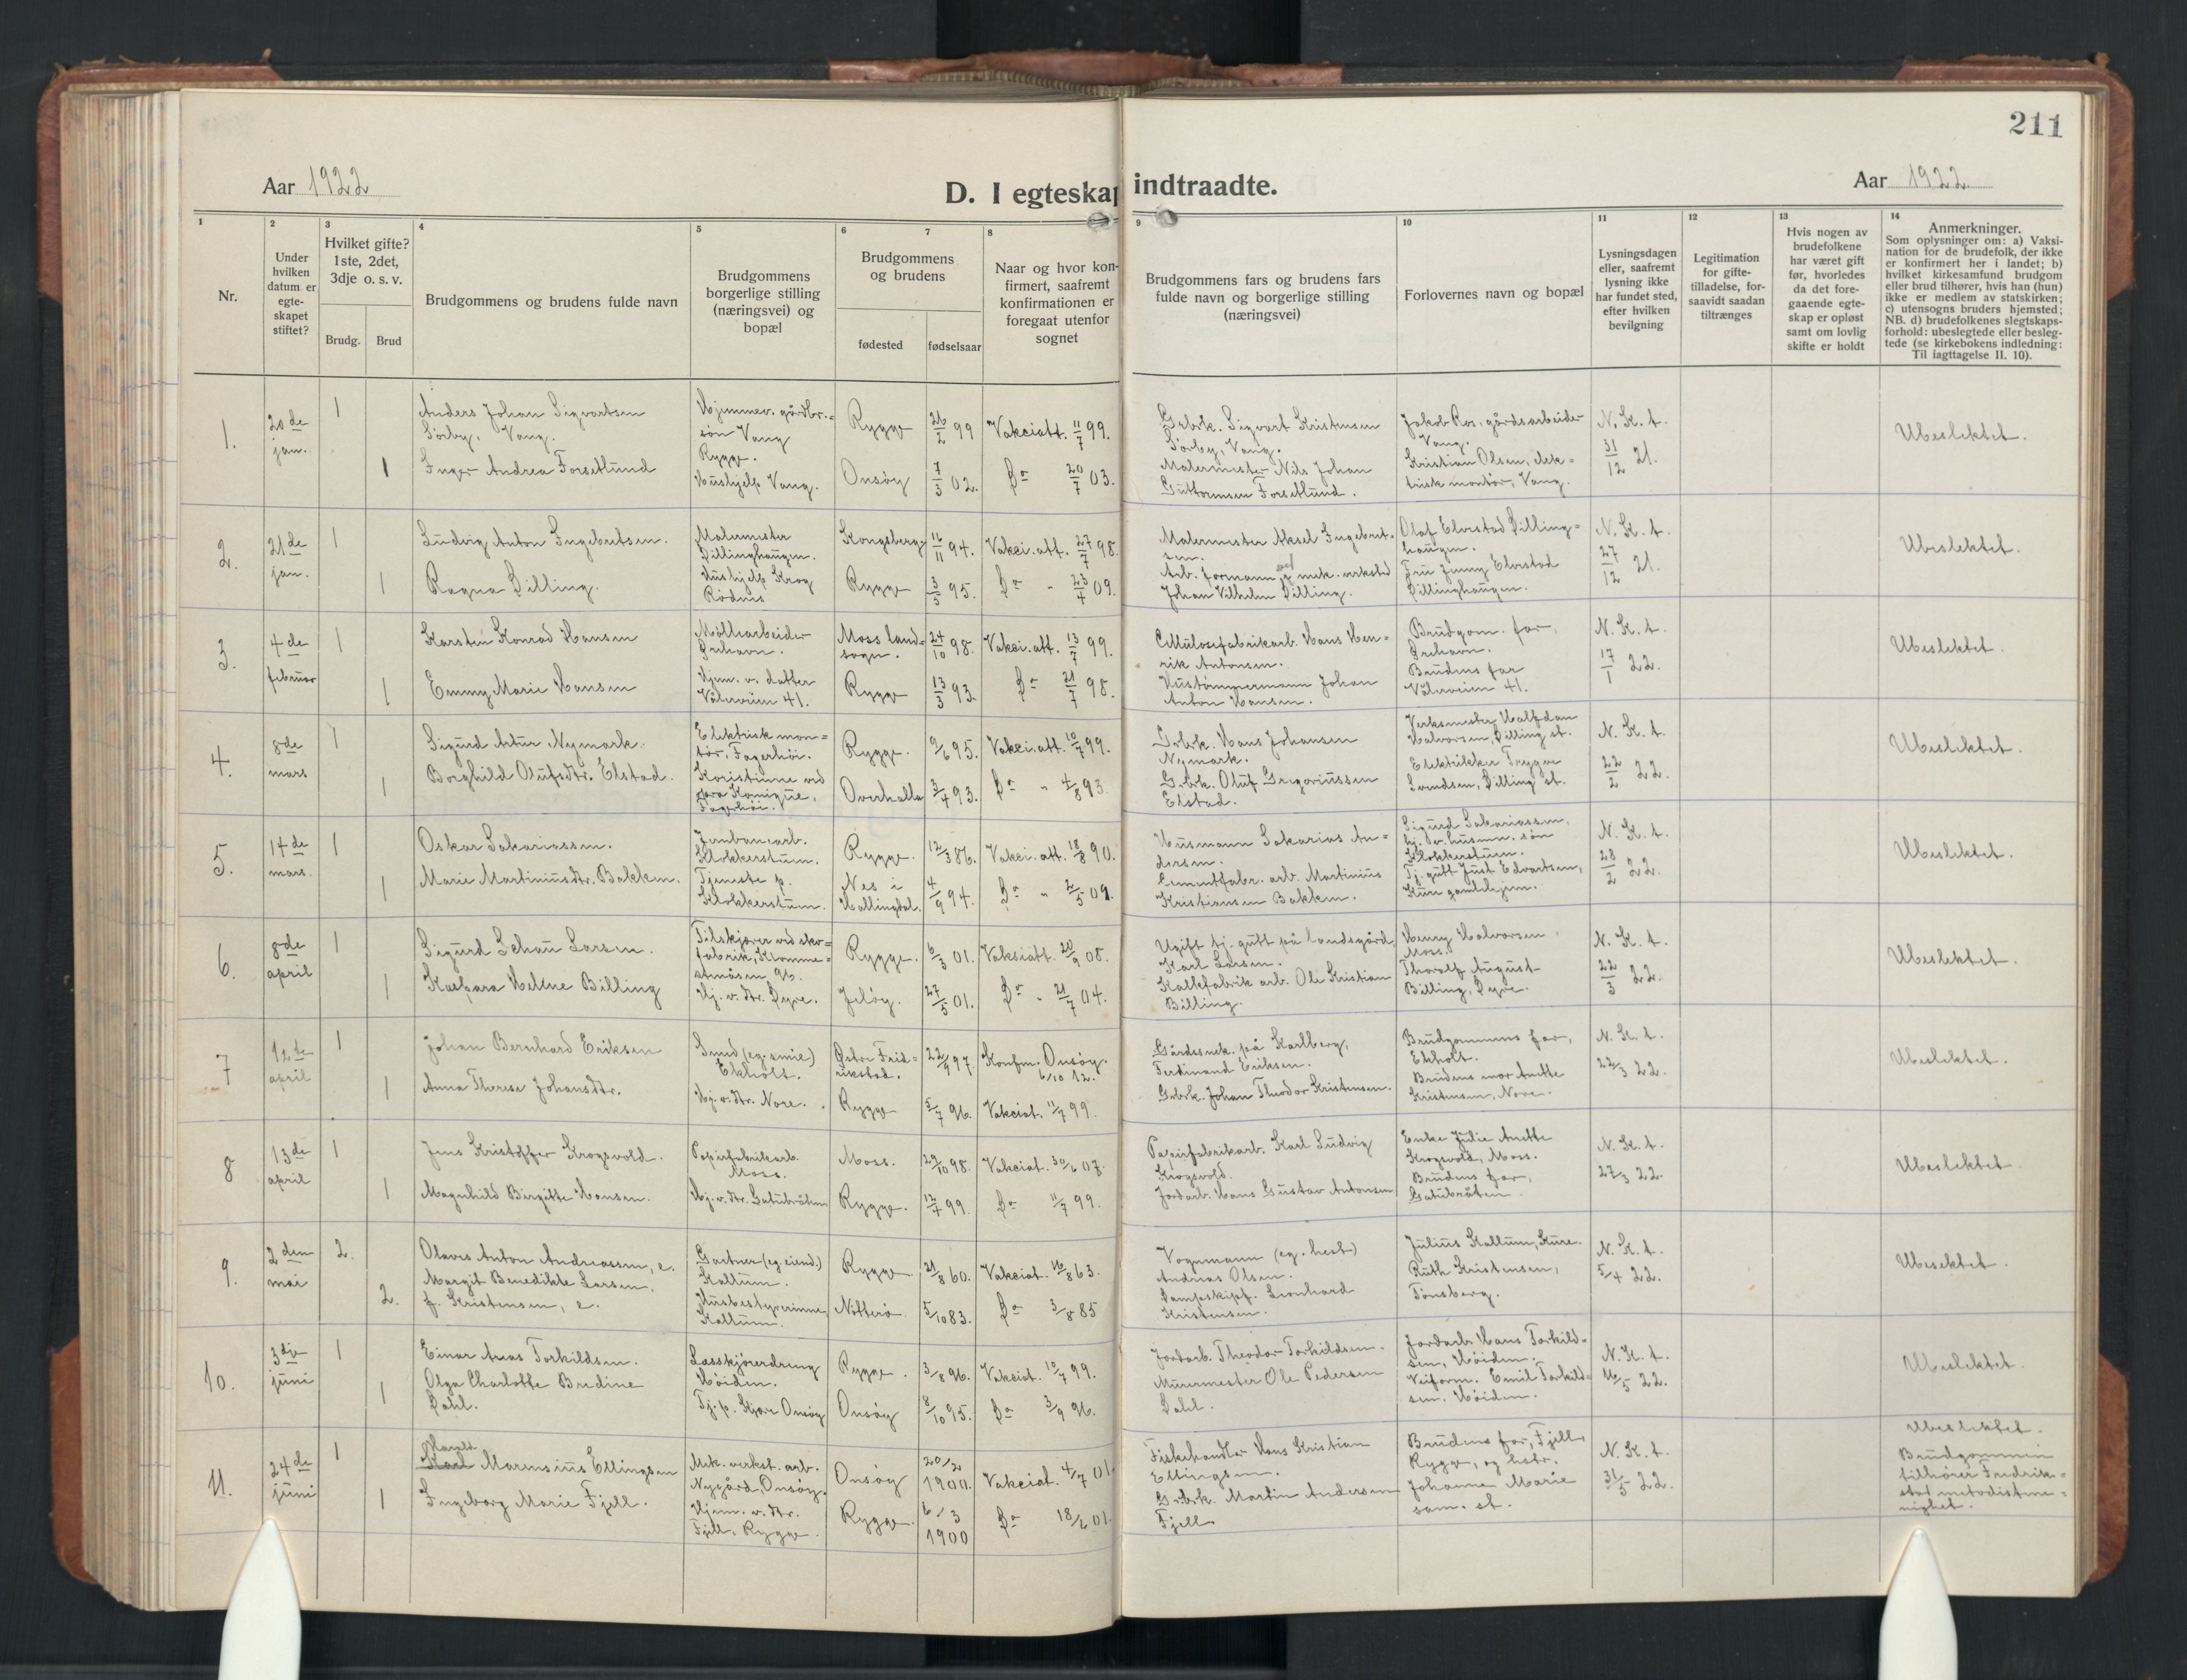 211
Aar 1922
D. I egteskap indtraadte.
Aar 1922.
1
Nr.
2
Under
hvilken
datum er
egte-
skapet
stiftet?
3
Hvilket gifte?
1ste, 2det,
3dje o. s. v.
Brudg.
Brud
4
Brudgommens og brudens fulde navn
5
Brudgommens
borgerlige stilling
(næringsvei) og
bopæl
6
7
Brudgommens
og brudens
fødested
fødselsaar
8
Naar og hvor kon-
firmert, saafremt
konfirmationen er
foregaat utenfor
sognet
9
Brudgommens fars og brudens fars
fulde navn og borgerlige stilling
(næringsvei)
10
Forlovernes navn og bopæl
11
Lysningsdagen
eller, saafremt
lysning ikke
har fundet sted,
efter hvilken
bevilgning
12
Legitimation
for gifte-
tilladelse, for-
saavidt saadan
tiltrænges
13
Hvis nogen av
brudefolkene
har været gift
før, hvorledes
da det fore-
gaaende egte-
skap er opløst
samt om lovlig
skifte er holdt
14
Anmerkninger.
Som oplysninger om: a) Vaksi-
nation for de brudefolk, der ikke
er konfirmert her i landet; b)
hvilket kirkesamfund brudgom
eller brud tilhører, hvis han (hun)
ikke er medlem av statskirken;
c) utensogns bruders hjemsted;
NB. d) brudefolkenes slegtskaps-
forhold: ubeslegtede eller besleg-
tede (se kirkebokens indledning:
Til iagttagelse II. 10).
1.
20de
jan.
1
1
Anders Johan Sigvartsen
Sørby, Vang.
Inger Andrea Forsetlund
Hjemmev. gårdbr.=
søn Vang
Rygge.
Hushjelp Vang.
Rygge
Onsøy
26/2 99
7/3 02.
Vakciatt. 11/7 99.
Do 20/7 03.
Grbrk. Sigvart Kristensen
Sørby, Vang.
Malermester Nils Johan
Guttormsen Forsetlund.
Jakob Ros, gårdsarbeider
Vang.
Kristian Olsen, elek=
trisk montør, Vang.
N. K. t.
31/12 21.
Ubeslektet.
2.
21de
jan.
1
1
Ludvig Anton Ingebretsen.
Ragna Dilling.
Malermester
Dillinghaugen.
Hushjelp Krog
Rødnes
Kongsberg
Rygge
16/11 94.
3/5 95.
Vakci.att. 27/7 98.
Do - 23/4 09.
Malermester Aksel Ingebret-
sen.
Arb. formann ved mek. verksted
Johan Vilhelm Dilling.
Olaf Elvestad Dilling=
haugen.
Fru Jenny Elvestad
Dillinghaugen.
N. K. t.
27/12 21.
Ubeslektet.
3.
4de
februar
1
1
Karsten Konrad Hansen
Emmy Marie Hansen
Møllearbeider
Ørehavn.
Hjem. v. datter
Vålerveien 41.
Moss land=
sogn.
Rygge
24/10 98.
13/3 93.
Vakci.att. 13/7 99.
Do 21/7 98.
Cellulosefabrikarb. Hans Hen=
rik Antonsen.
Hustømmermann Johan
Anton Hansen.
Brudgom. far,
Ørehavn.
Brudens far
Vålerveien 41.
N. K. t.
17/1 22.
Ubeslektet.
4.
8de
mars
1
1
Sigurd Artur Nymark.
Borghild Olufsdtr. Elstad.
Elektrisk mon=
tør, Fagerhøi.
Rygge.
Overhalla
9/6 95.
3/4 93.
Vakci.att. 10/7 99.
Do " 4/8 93.
Grbrk. Hans Johansen
Nymark.
Grbrk. Oluf Gregoriussen
Elstad.
Verksmester Halfdan
Halvorsen, Dilling st.
Elektriker Trygve
Svendsen, Dilling st.
N. K. t.
22/2 22.
Ubeslektet.
5.
14de
mars.
1
1
Oskar Sakariassen.
Marie Martiniusdtr. Bakken.
Jernbanearb.
Klokkerstuen.
Tjeneste p.
Klokkerstuen.
Rygge.
Nes i
Hallingdal.
12/3 86.
4/9 94.
Vakci.att. 18/8 90.
Do " 2/5 09.
Husmann Sakarias An=
dersen.
Cementfabr. arb. Martinius
Kristiansen Bakken.
Sigurd Sakariassen,
hj. v. husm. søn
Klokkerstuen.
Tj. gutt Just Edvartsen,
Kure gamlehjem.
N. K. t.
28/2 22.
Ubeslektet.
6.
8de
april
1
1
Sigurd Schau Larsen.
Kaspara Helene Billing
Tilskjærer ved sko=
fabrik, Klomme=
stensåsen 96.
Hj. v. dtr. Dyre.
Rygge.
Jeløy.
6/3 01.
27/5 01.
Vaksiatt. 20/9 08.
Do - 21/7 04.
Ugift tj. gutt på landsgård
Karl Larsen.
Kalkfabrik arb. Ole Kristian
Billing.
Henry Halvorsen,
Moss.
Thoralf August
Billing, Dyre.
N. K. t.
22/3 22.
Ubeslektet.
7
12te
april
1
1
Johan Bernhard Eriksen
Anna Therese Johansdtr.
Smed (eg. smie)
Ekholt.
Hj. v. dtr. Nore.
Østre Fred=
rikstad.
Rygge
22/9 97.
5/7 96.
Konfm. Onsøy.
6/10 12.
Vakciat. 11/7 99.
Gårdssnek. på Karlberg,
Ferdinand Eriksen.
Grbrk. Johan Theodor Kristensen.
Brudgommens far,
Ekholt.
Brudens mor Anette
Kristensen, Nore.
N. K. t.
22/3 22.
Ubeslektet.
8
13de
april
1
1
Jens Kristoffer Krogsvold.
Magnhild Birgitte Hansen.
Papirfabrikarb.
Moss.
Hj. v. dtr. Gatubråten
Moss.
Rygge.
29/10 98.
12/4 99.
Vakciat. 30/6 07.
Do 11/7 99.
Papirfabrikarb. Karl Ludvig
Krogsvold.
Jordarb. Hans Gustav Antonsen
Enke Julie Anette
Krogsvold, Moss.
Brudens far,
Gatubråten.
N. K. t.
27/3 22.
Ubeslektet.
9.
2den
mai
2.
2.
Olaves Anton Andreassen, e.
Margit Benedikte Larsen,
f. Kristensen, e.
Gartner (eg. eiend.)
Kallum.
Husbestyrerinne
Kallum.
Rygge
Nøtterø.
21/8 60.
5/10 83.
Vakciat. 16/8 63.
Do 3/8 85
Vognmann (eg. hest)
Andreas Olsen.
Dampskipf. Leonhard
Kristensen.
Julius Kallum, Kure.
Ruth Kristensen,
Tønsberg.
N. K. t.
5/4 22.
Ubeslektet.
10.
3dje
juni
1
1
Einar Areas Torkildsen.
Olga Charlotte Bredine
Dahl.
Lasskjørerdreng
Høiden.
Tj. p. Kjære Onsøy
Rygge.
Onsøy
3/8 96.
8/10 95.
Vakciat. 10/7 99.
Do 3/9 96.
Jordarb. Theodor Torkildsen.
Murermester Ole Pedersen
Dahl.
Jordarb. Hans Torkild=
sen, Høiden.
Veiform. Emil Torkild=
sen, Høiden.
N. K. t.
16/5 22.
Ubeslektet.
11.
24de
juni
1
1
Harald
Karl Marensius Ellingsen
Ingeborg Marie Fjell.
Mek. verkst. arb.
Nygård, Onsøy.
Hjem. v. dtr.
Fjell, Rygge.
Onsøy
Rygge.
20/2
1900.
6/3
1900
Vakciat. 4/7 01.
Do 18/6 01.
Fiskehandler Hans Kristian
Ellingsen.
Grbrk. Martin Andersen
Fjell.
Brudens far, Fjell,
Rygge, og hstr.
Johanne Marie
sam. st.
N. K. t.
31/5 22.
Ubeslektet.
Brudgommen
tilhører Fredrik=
stad metodistme=
nighet.